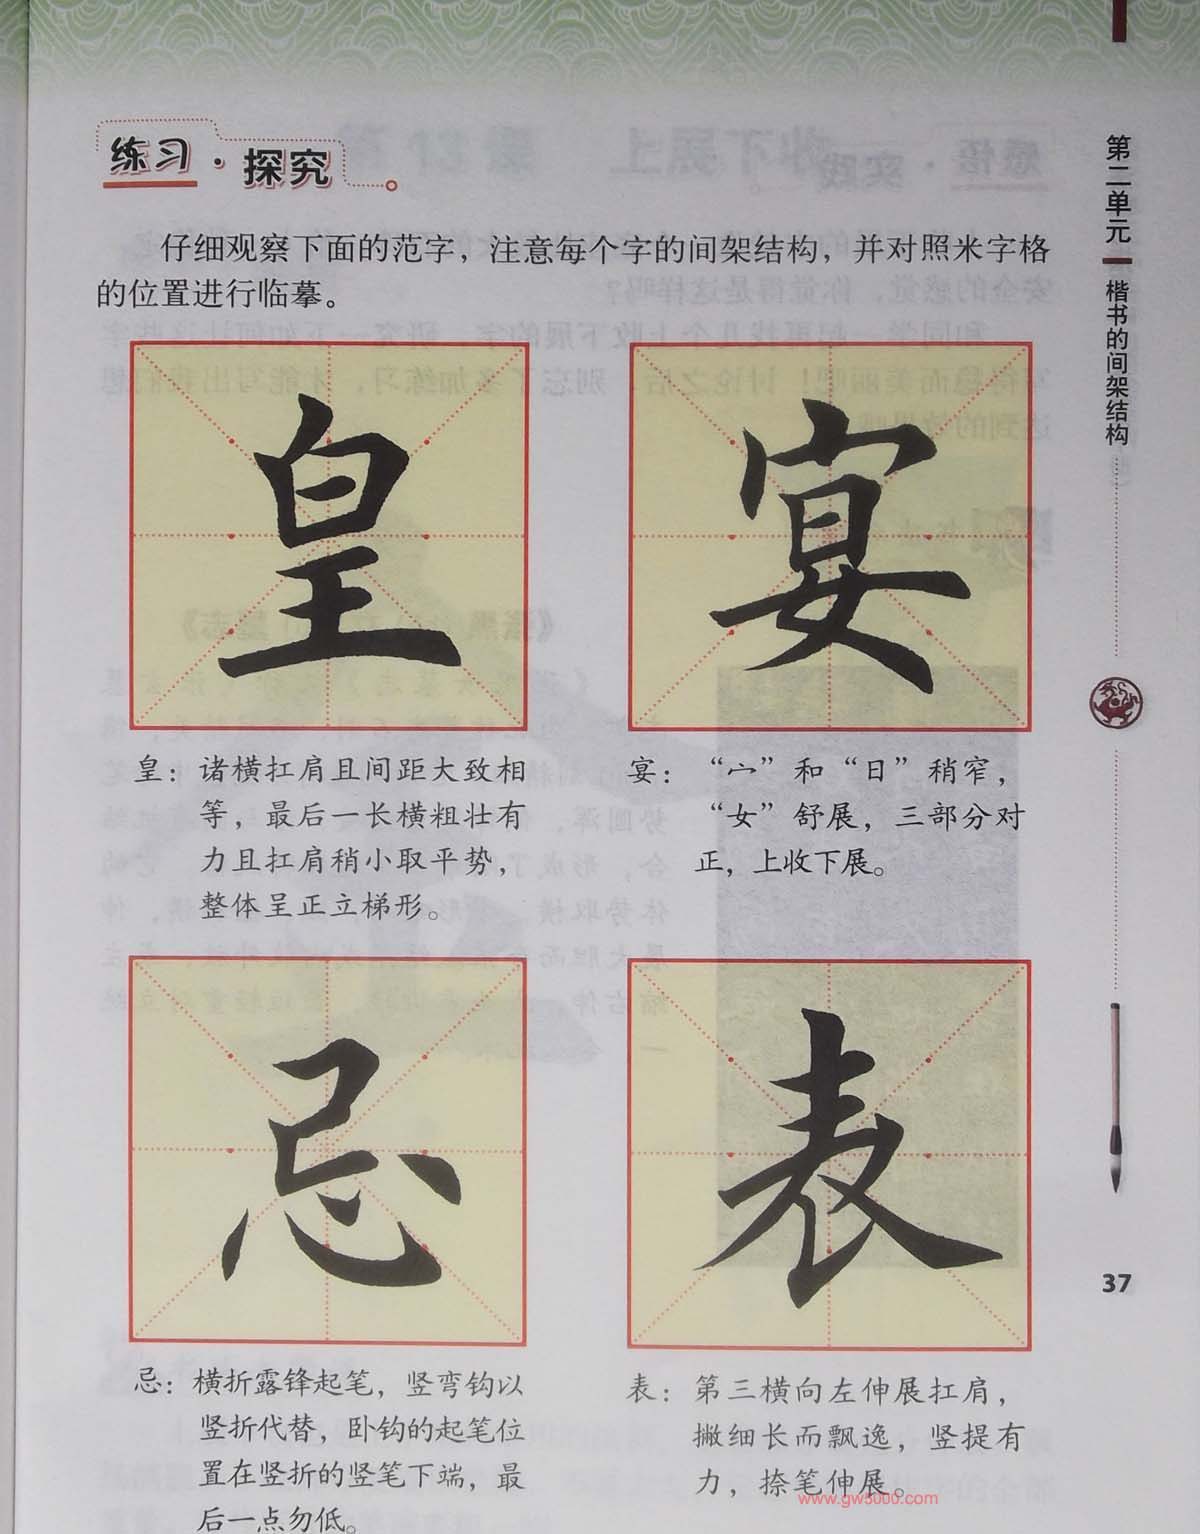 练习·探究
仔细观察下面的范字，注意每个字的间架结构，并对照米字格
的位置进行临摹。
皇
宴
皇：诸横扛肩且间距大致相
等，最后一长横粗壮有
力且扛肩稍小取平势，
整体呈正立梯形。
宴：“宀”和“日”稍窄，
“女”舒展，三部分对
正，上收下展。
忌
表
忌：横折露锋起笔，竖弯钩以
竖折代替，卧钩的起笔位
置在竖折的竖笔下端，最
后一点勿低。
表：第三横向左伸展扛肩，
撇细长而飘逸，竖提有
力，捺笔伸展。
www.gw5000.com
第二单元
楷书的间架结构
37